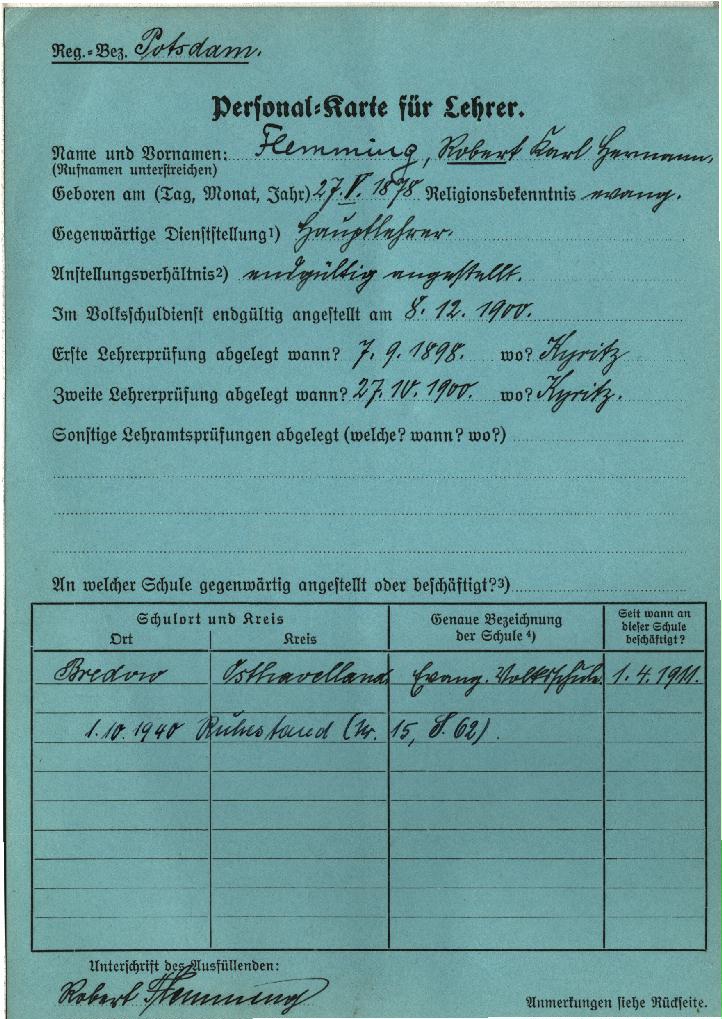 Reg.-Bez. Potsdam.
Personal-Karte für Lehrer.
Name und Vornamen: Flemming, Robert Karl Hermann.
(Rufnamen unterstreichen)
Geboren am (Tag, Monat, Jahr) 27. V. 1878 Religionsbekenntnis evang.
Gegenwärtige Dienststellung1) Hauptlehrer.
Anstellungsverhältnis2) endgültig angestellt.
Im Volksschuldienst endgültig angestellt am 8. 12. 1900.
Erste Lehrerprüfung abgelegt wann? 7. 9. 1898. wo? Kyritz
Zweite Lehrerprüfung abgelegt wann? 27. 10. 1900. wo? Kyritz.
Sonstige Lehramtsprüfungen abgelegt (welche? wann? wo?)
An welcher Schule gegenwärtig angestellt oder beschäftigt?3)
Schulort und Kreis Genaue Bezeichnung der Schule 4) Seit wann an dieser Schule beschäftigt?
Ort Kreis
Bredow Osthavelland Evang. Volksschule 1. 4. 1911.
1. 10. 1940 Ruhestand (Nr. 15, S. 62).
Unterschrift des Ausfüllenden:
Robert Flemming
Anmerkungen siehe Rückseite.